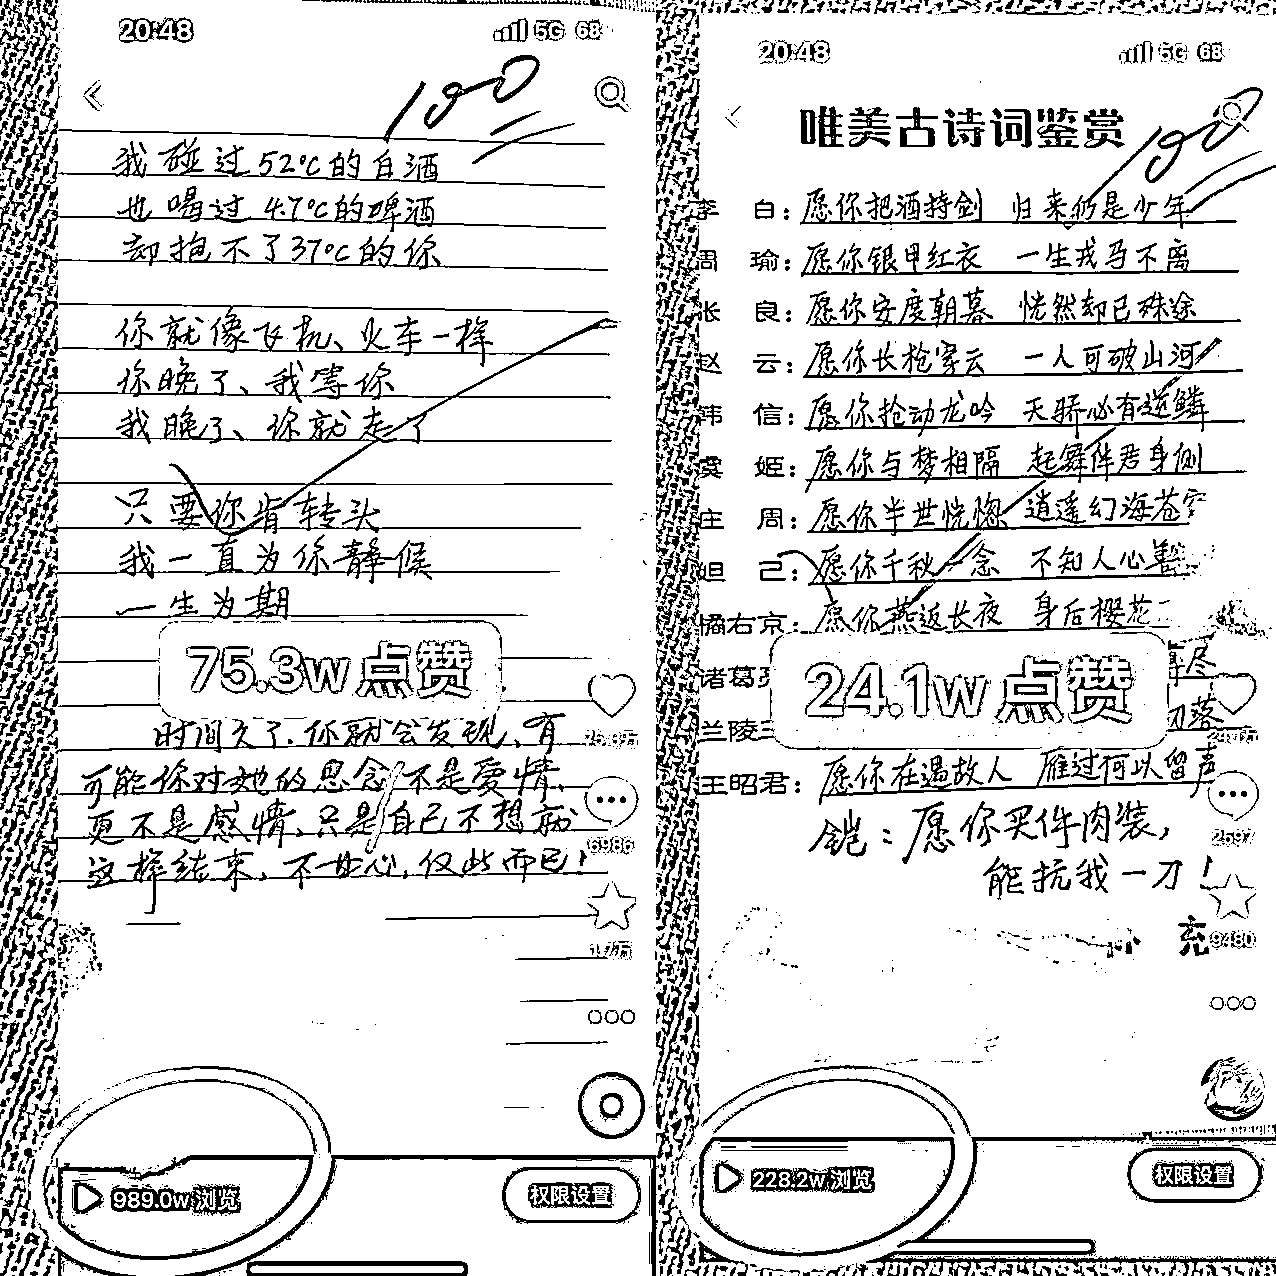 20:48
5G 68
100
我碰过52℃的白酒
也喝过47℃的啤酒
却抱不了37℃的你
你就像飞机、火车一样
你晚了、我等你
我晚了、你就走了
只要你肯转头
我一直为你静候
一生为期
75.3w点赞
时间久了.你就会发现,有
可能你对她的思念不是爱情,
更不是感情,只是自己不想就
这样结束,不甘心,仅此而已!
6986
989.0w 浏览
权限设置
20:48
5G 68
唯美古诗词鉴赏
100
李白:愿你把酒持剑 归来仍是少年
周瑜:愿你银甲红衣 一生戎马不离
张良:愿你安度朝暮 恍然却已殊途
赵云:愿你长枪穿云 一人可破山河
韩信:愿你抢动龙吟 天骄必有逆鳞
虞姬:愿你与梦相隔 起舞伴君身侧
庄周:愿你半世恍惚 逍遥幻海苍穹
妲己:愿你千秋一念 不知人心
橘右京:愿你燕返长夜 身后樱花
诸葛
尽
兰陵
落
24.1w点赞
王昭君:愿你在遇故人 雁过何以留声
铠:愿你买件肉装,
能抗我一刀!
2697
充
9480
228.2w 浏览
权限设置